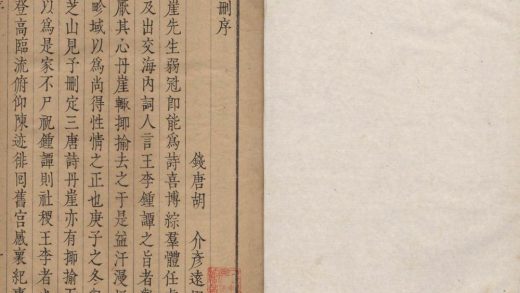 刪序
錢唐胡 介彥遠
崖先生弱冠卽能爲詩喜博綜羣體任
及出交海內詞人言王李鍾譚之旨者
厭其心丹崖輒揶揄去之于是益汗漫
畛域以爲尚得性情之正也庚子之冬
芝山見予刪定三唐詩丹崖亦有揶揄
以爲是家不尸祝鍾譚則社稷王李者
登高臨流俯仰陳迹徘徊舊宮感襄紀